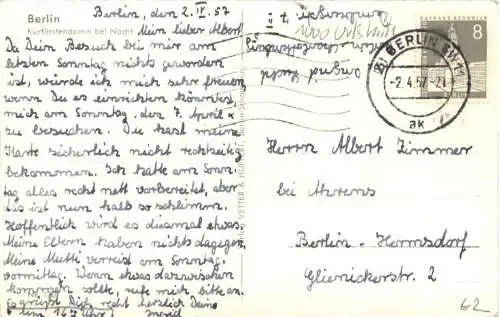 Berlin
Kurfürstendamm bei Nacht
Berlin, den 2. IV. 57
Mein lieber Albert!
Da Dein Besuch bei mir am
letzten Sonntag nichts geworden
ist, würde ich mich sehr freuen,
wenn Du es einrichten könntest,
mich am Sonntag, den 7. April
zu besuchen. Du hast meine
Karte sicherlich nicht rechtzeitig
bekommen. Ich hatte am Sonn-
tag alles recht nett vorbereitet, aber
das ist nun halb so schlimm.
Hoffentlich wird es diesmal etwas.
Meine Eltern haben nichts dagegen,
Meine Mutti verreist am Sonntag-
vormittag. Wenn etwas dazwischen
kommen sollte, rufe mich bitte an.
Es grüßt Dich recht herzlich Deine
um 16 Uhr!
VETTER &
8
BERLIN SW 11
-2.4.57-21
ak
Herrn Albert Zimmer
bei Ahrens
Berlin-Hermsdorf
Glienickerstr. 2
62